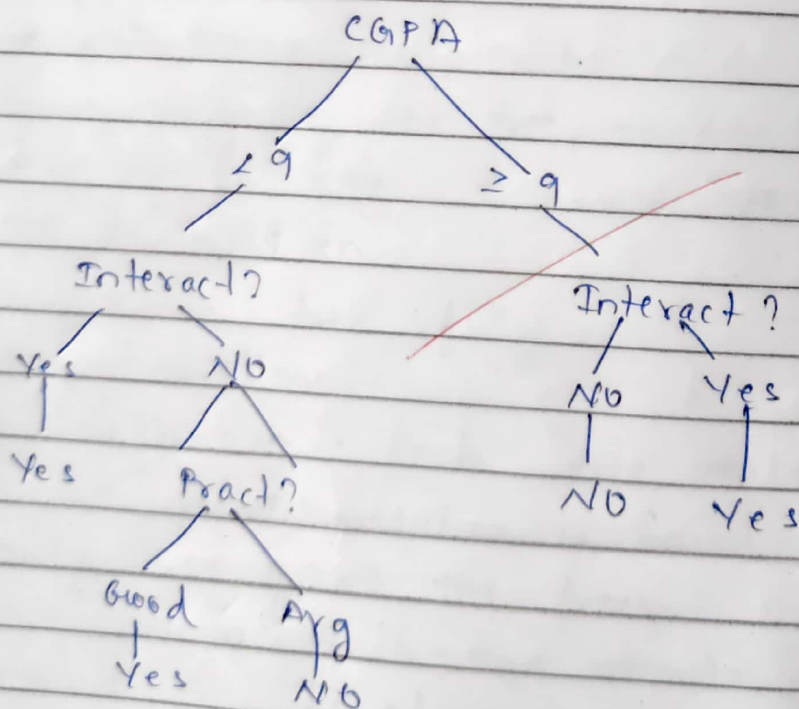 CGPA
< 9 ≥ 9
Interact? Interact?
Yes NO NO Yes
Yes Pract? NO Yes
Good Avg
Yes NO